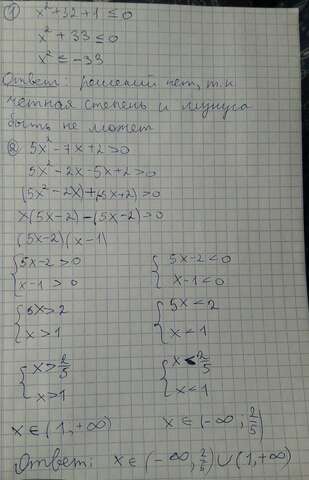 ① x² + 32 + 1 ≤ 0
x² + 33 ≤ 0
x² ≤ -33
Ответ: решений нет, т.к
четная степень и минуса
быть не может
② 5x² - 7x + 2 > 0
5x² - 2x - 5x + 2 > 0
(5x² - 2x) + (-5x + 2) > 0
x(5x - 2) - (5x - 2) > 0
(5x - 2)(x - 1)
{ 5x - 2 > 0 { 5x - 2 < 0
x - 1 > 0 x - 1 < 0
{ 5x > 2 { 5x < 2
x > 1 x < 1
{ x > 2/5 { x < 2/5
x > 1 x < 1
x ∈ (1, +∞) x ∈ (-∞, 2/5)
Ответ: x ∈ (-∞, 2/5) ∪ (1, +∞)